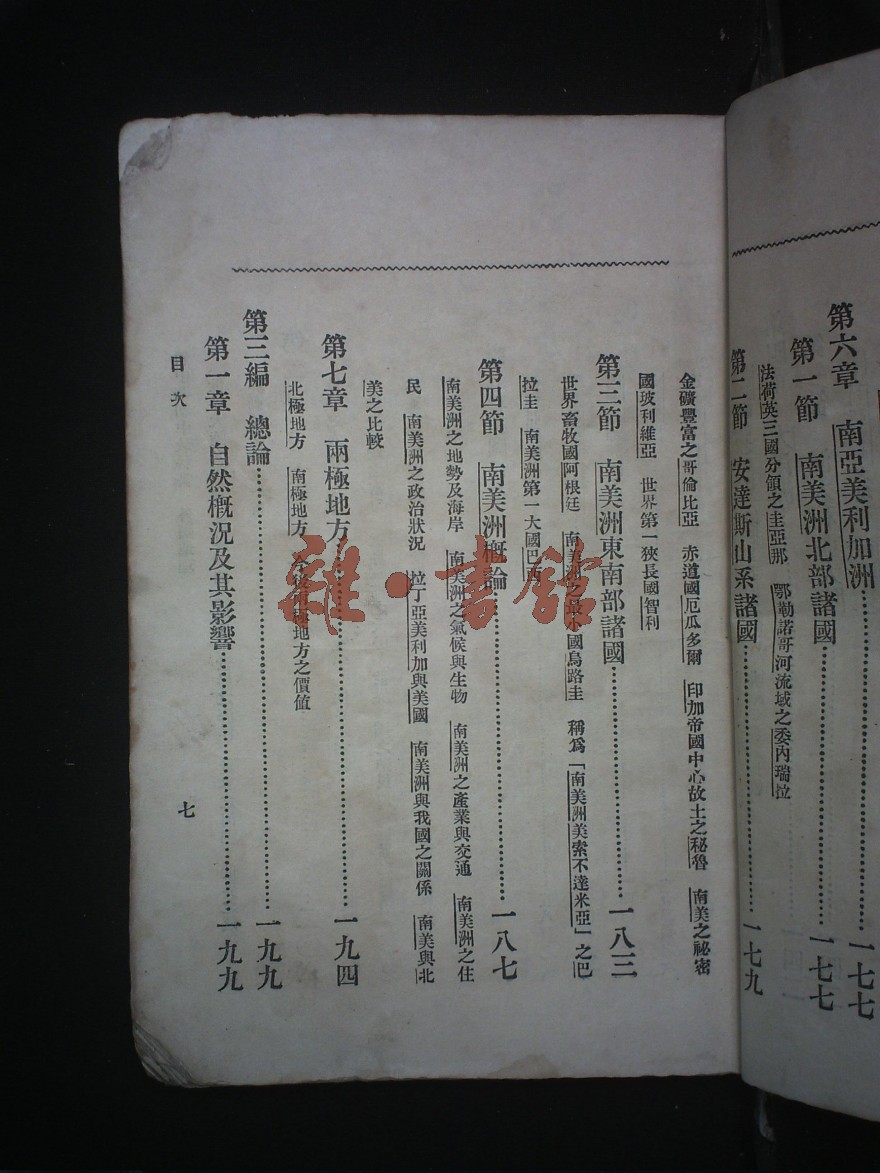 第六章　南亞美利加洲……一七七
第一節　南美洲北部諸國……一七七
法荷英三國分領之圭亞那　鄂勒諾哥河流域之委內瑞拉
第二節　安達斯山系諸國……一七九
金礦豐富之哥倫比亞　赤道國厄瓜多爾　印加帝國中心故土之秘魯　南美之祕密
國玻利維亞　世界第一狹長國智利
第三節　南美洲東南部諸國……一八三
世界畜牧國阿根廷　南美洲之最小國烏路圭　稱爲「南美洲美索不達米亞」之巴
拉圭　南美洲第一大國巴西
第四節　南美洲概論……一八七
南美洲之地勢及海岸　南美洲之氣候與生物　南美洲之產業與交通　南美洲之住
民　南美洲之政治狀況　拉丁亞美利加與美國　南美洲與我國之關係　南美與北
美之比較
第七章　兩極地方……一九四
北極地方　南極地方　今後兩極地方之價值
第三編　總論……一九九
第一章　自然概況及其影響……一九九
目次
七
雜·書館